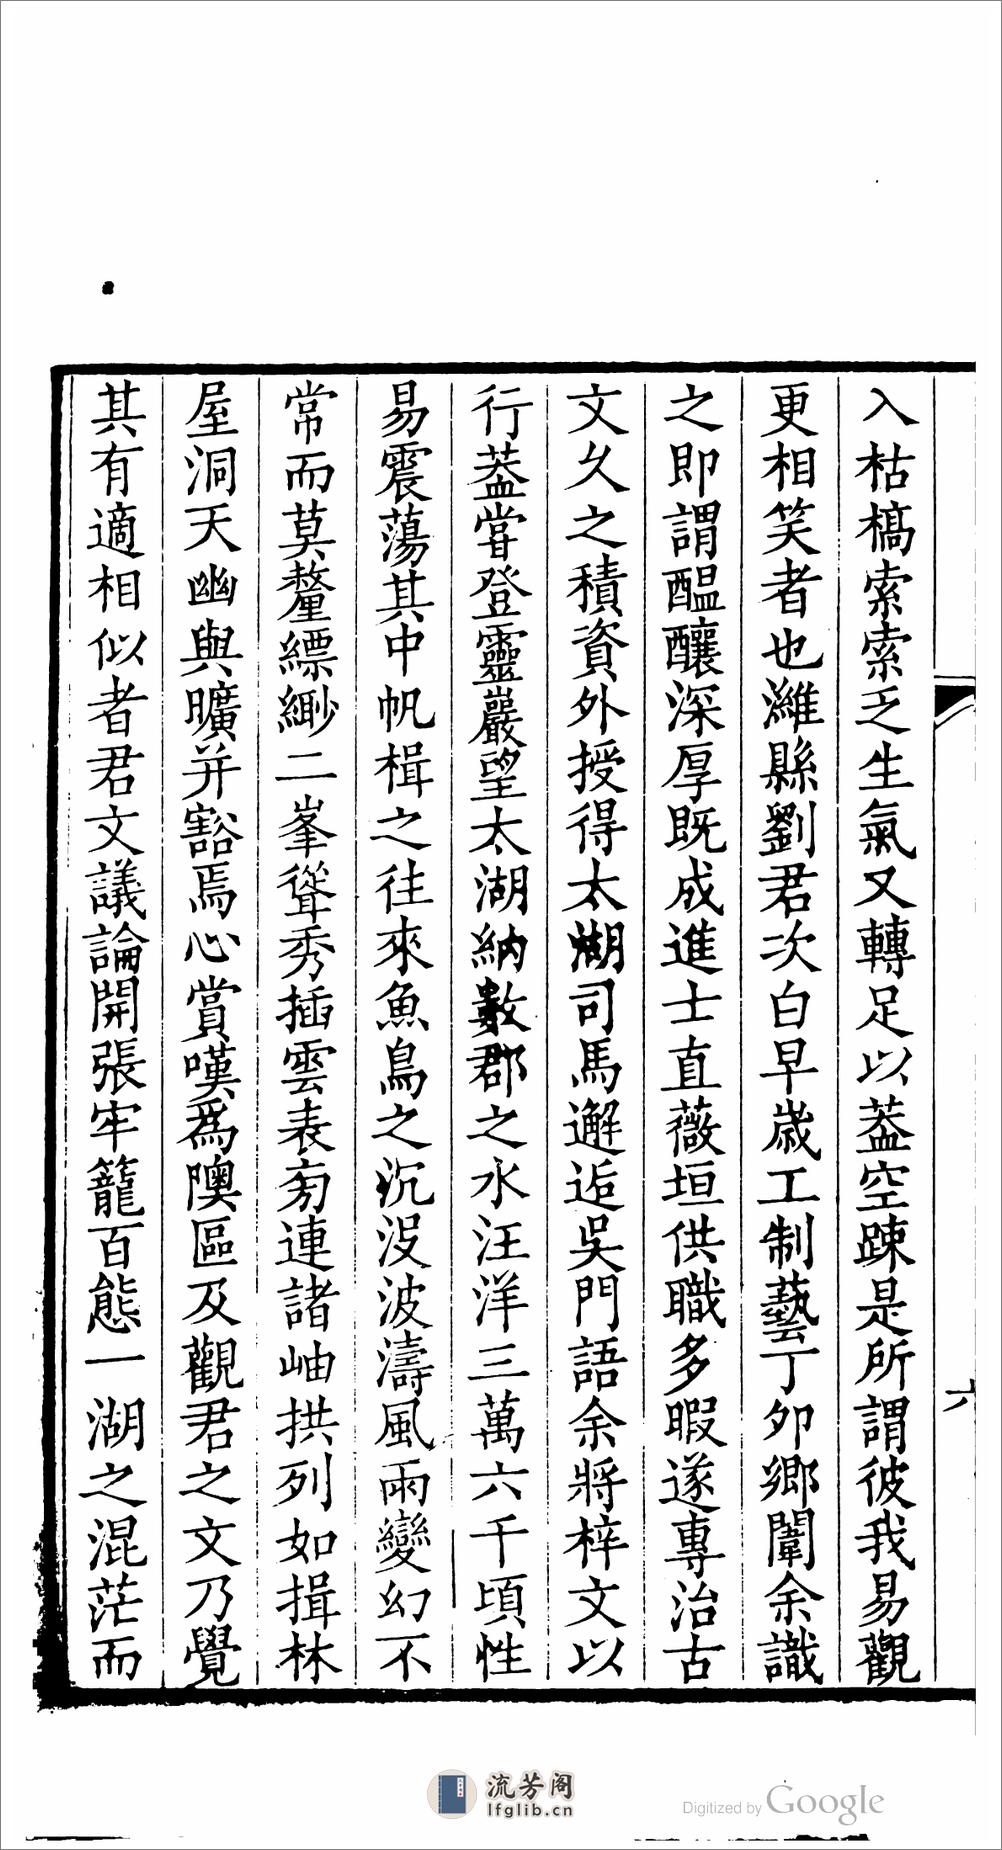 入枯槁索索乏生氣又轉足以葢空踈是所謂彼我易觀
更相笑者也濰縣劉君次白早歲工制藝丁夘鄉闈余識
之即謂醖釀深厚既成進士直薇垣供職多暇遂專治古
文久之積資外授得太湖司馬邂逅吳門語余將梓文以
行葢甞登靈巖望太湖納數郡之水汪洋三萬六千頃性
易震蕩其中帆楫之往來魚鳥之沉沒波濤風雨變幻不
常而莫釐縹緲二峯聳秀插雲表旁連諸岫拱列如揖林
屋洞天幽與曠并豁焉心賞嘆爲隩區及觀君之文乃覺
其有適相似者君文議論開張牢籠百態一湖之混茫而
六
流芳阁
lfglib.cn
Digitized by Google